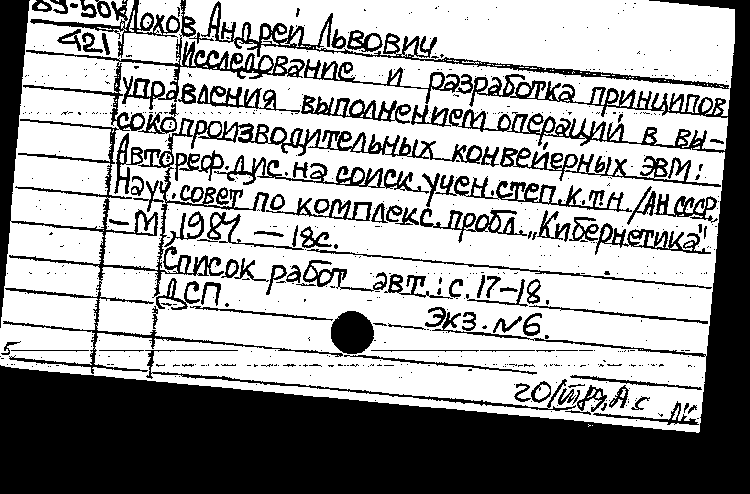 89-50к Лохов Андрей Львович.
421
Исследование и разработка принципов
управления выполнением операций в вы-
сокопроизводительных конвейерных ЭВМ:
Автореф. дис. на соиск. учен. степ. к.т.н. /АН СССР.
Науч. совет по комплекс. пробл. „Кибернетика".
– М, 1987. – 18с.
Список работ авт.: с. 17–18.
ДСП.
Экз. №6.
5
20/VII 89, А с